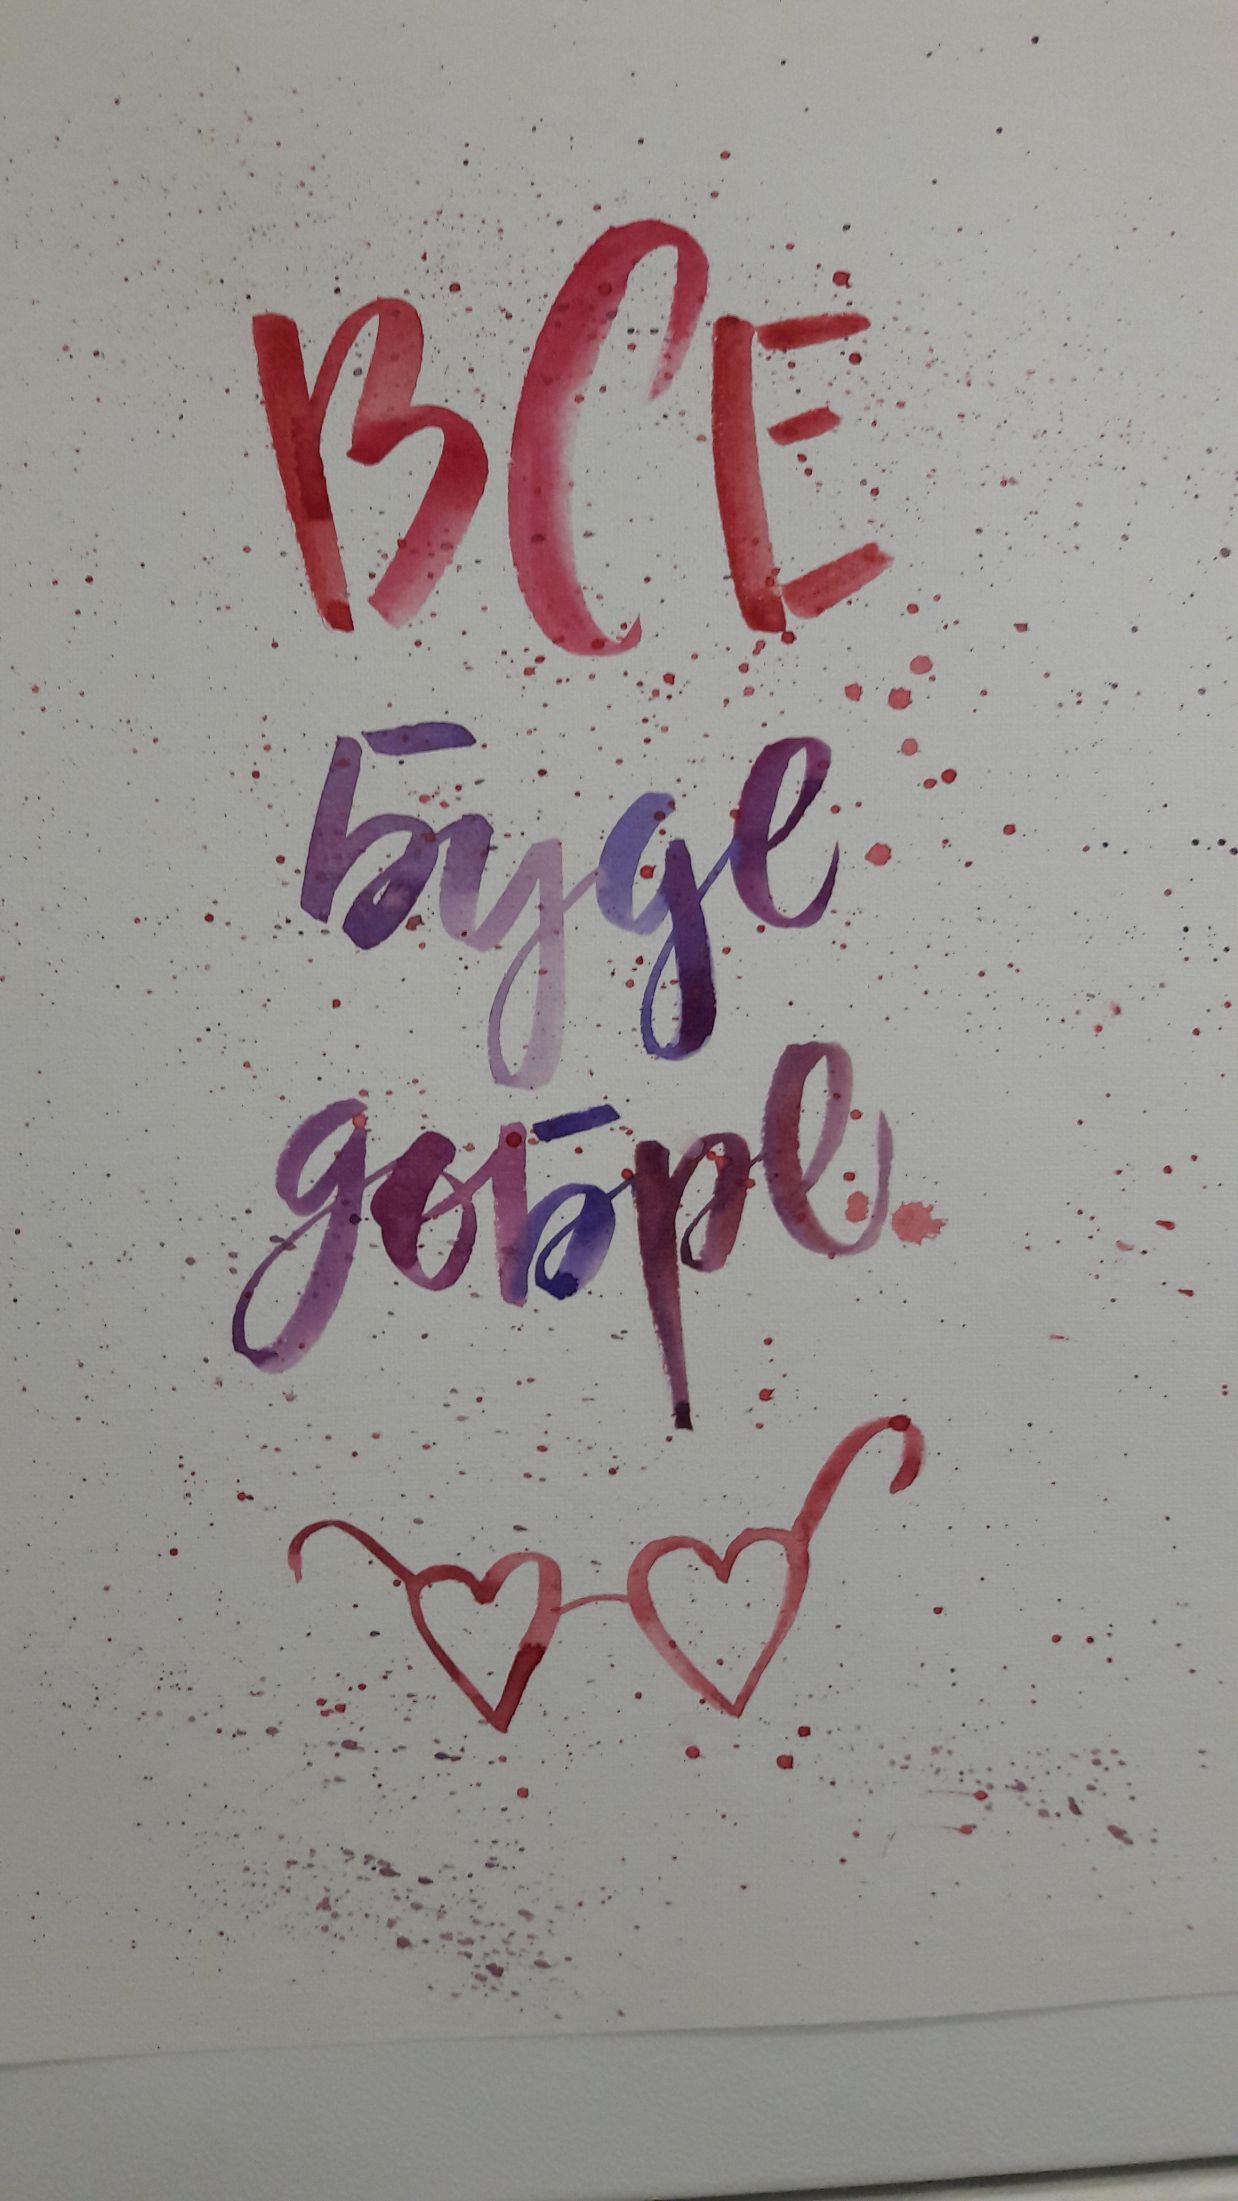 ВСЕ
буде
добре